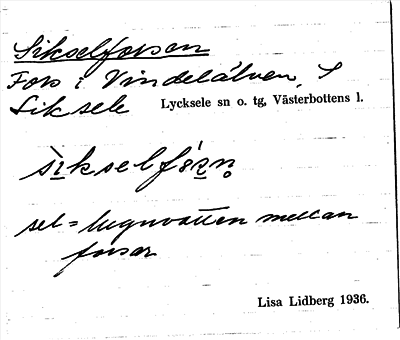 Sikselforsen
Fors i Vindelälven, S
Siksele Lycksele sn o. tg, Västerbottens l.
sel = lugnvatten mellan
forsar
Lisa Lidberg 1936.